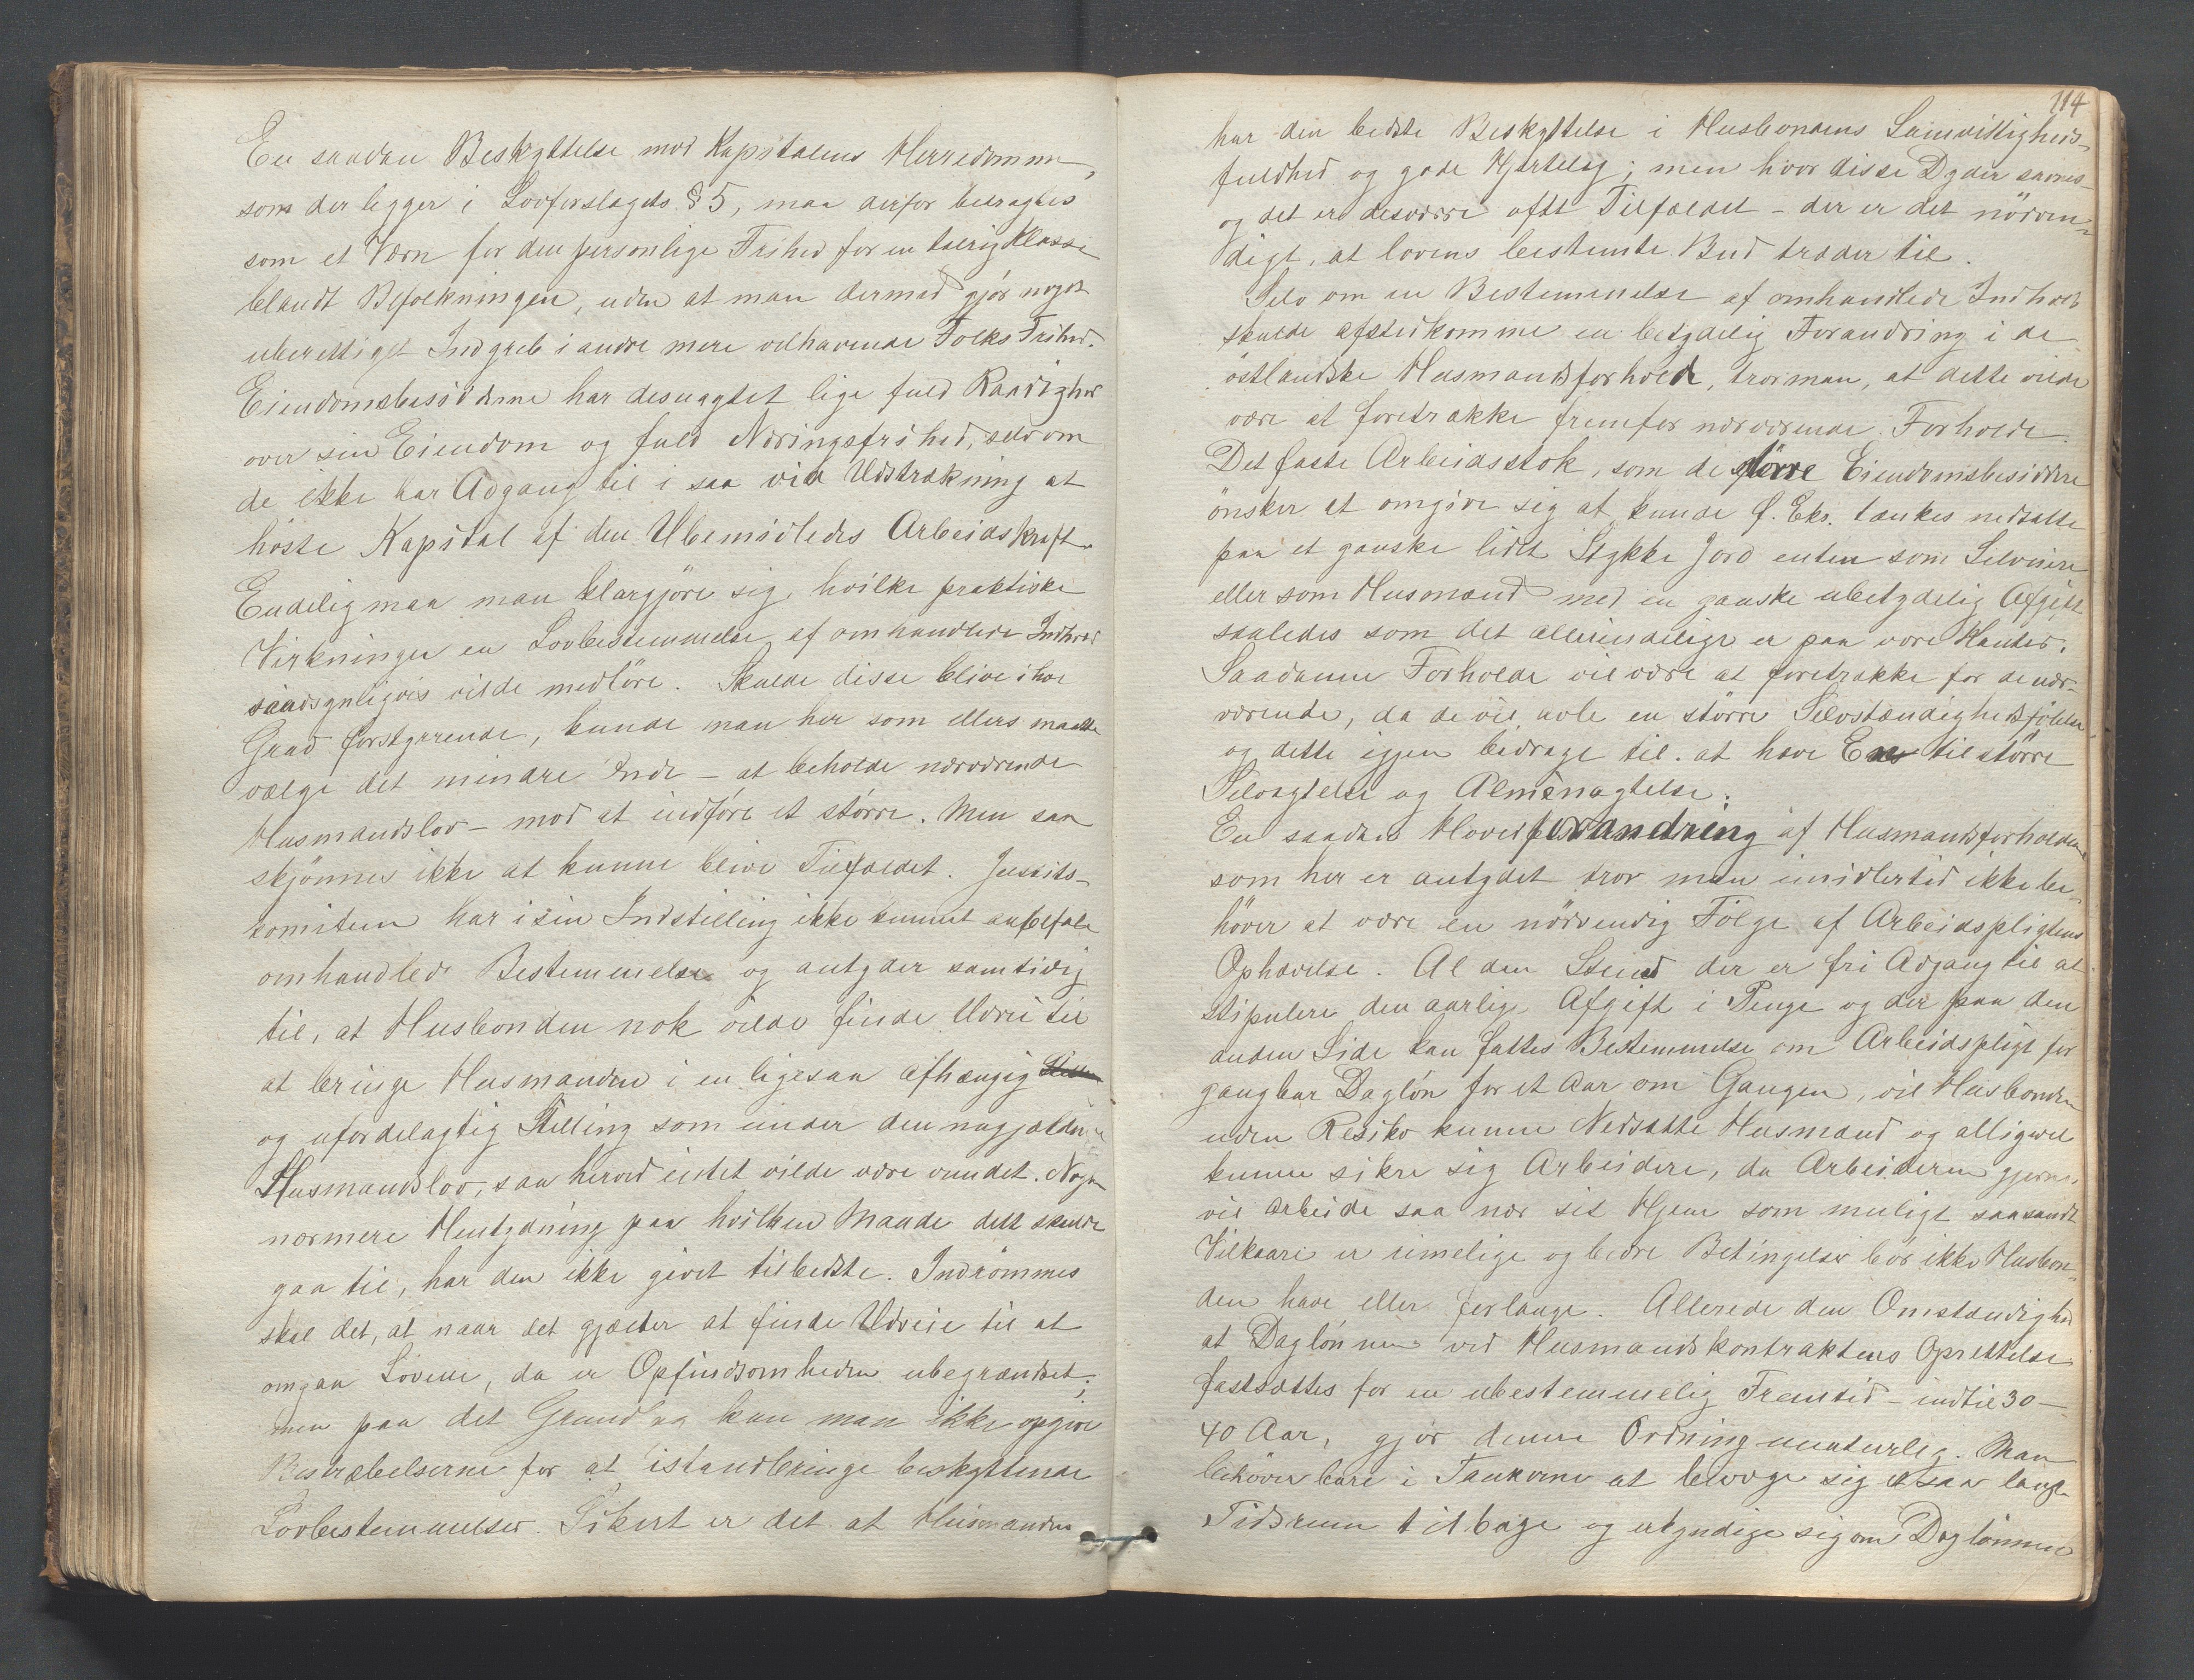 En saadan Beskyttelse mod Kapitalens Herredømme,
som der ligger i Lovforslagets § 5, maa derfor betragtes
som et Værn for den personlige Frihed for en talrig Klasse
blandt Befolkningen, uden at man dermed gjør noget
uberettiget Indgreb i andre mere velhavende Folks Frihed.
Eiendomsbesidderne har desuagtet lige fuld Raadighed
over sin Eiendom og fuld Næringsfrihed, selv om
de ikke har Adgang til i saa vid Udstrækning at
høste Kapital af den Ubemidledes Arbeidskraft.
Endelig maa man klargjøre sig, hvilke praktiske
Virkninger en Lovbestemmelse af omhandlede Indhold
sandsynligvis vilde medføre. Skulde disse blive i høi
Grad forstyrrende, kunde man her som ellers maatte
vælge det mindre Onde – at beholde nærværende
Husmandslov – mod at indføre et større. Men saa
skjønnes ikke at kunne blive Tilfældet. Justits-
komiteen har i sin Indstilling ikke kunnet anbefale
omhandlede Bestemmelse og antyder samtidig
til, at Husbonden nok vilde finde Udvei til
at bringe Husmanden i en ligesaa afhængig
og ufordelagtig Stilling som under den nugjældende
Husmandslov, saa herved intet vilde være vundet. Nogen
nærmere Hentydning paa hvilken Maade dett skulde
gaa til, har den ikke givet tilbedste. Indrømmes
skal det, at naar det gjælder at finde Udveie til at
omgaa Lovene, da er Opfindsomheden ubegrændset;
men paa det Grundlag kan man ikke opgive
Bestræbelserne for at istandbringe beskyttende
Lovbestemmelser. Sikert er det at Husmanden
114
har den bedste Beskyttelse i Husbondens Samvittigheds-
fuldhed og gode Hjertelag; men hvor disse Dyder savnes –
og det er desværre oftt Tilfældet – der er det nødven-
digt, at lovens bestemte Bud træder til.
Selv om en Bestemmelse af omhandlede Indhold
skulde afstedkomme en betydelig Forandring i de
østlandske Husmandsforhold, tror man, at dette vilde
være at foretrække fremfor nærværende Forholde.
Det faste Arbeidsstok, som de større Eiendomsbesiddere
ønsker at omgive sig af kunde f. Eks. tænkes nedsatte
paa et ganske lidet Stykke Jord enten som Selveiere
eller som Husmænd med en ganske ubetydelig Afgift
saaledes som det almindelige er paa vore Kanter.
Saadanne Forholde vil være at foretrække for de nær-
værende, da de vil avle en større Selvstændighedsfølelse
og dette igjen bidrage til at hæve En til større
Selvagtelse og Almenagtelse.
En saadan Hovedforandring af Husmandsforholdene
som her er antydet tror man imidlertid ikke be-
høver at være en nødvendig Følge af Arbeidspligtens
Ophævelse. Al den Stund der er fri Adgang til at
stipulere den aarlige Afgift i Penge og der paa den
anden Side kan fattes Bestemmelse om Arbeidspligt for
gangbar Dagløn for et Aar om Gangen, vil Husbonden
uden Risiko kunne Nedsætte Husmænd og alligevel
kunne sikre sig Arbeidere, da Arbeideren gjerne
vil arbeide saa nær sit Hjem som muligt saasandt
Vilkaarene er rimelige og bedre Betingelser bør ikke Husbon-
den have eller forlange. Allerede den Omstændighed
at Daglønnen ved Husmandskontraktens Oprettelse
fastsættes for en ubestemmelig Fremtid – indtil 30 –
40 Aar, gjør denne Ordning unaturlig. Man
behøver bare i Tankerne at bevæge sig et saa langt
Tidsrum tilbage og erkyndige sig om Daglønnen